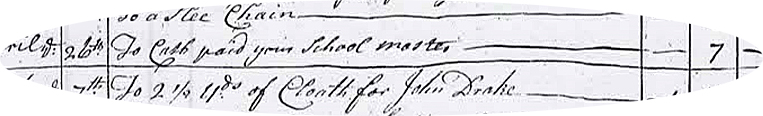 to a Stee Chain
ril d: 26th To Cash paid your School master 7
7th To 2 1/2 Yds of Cloath for John Drake